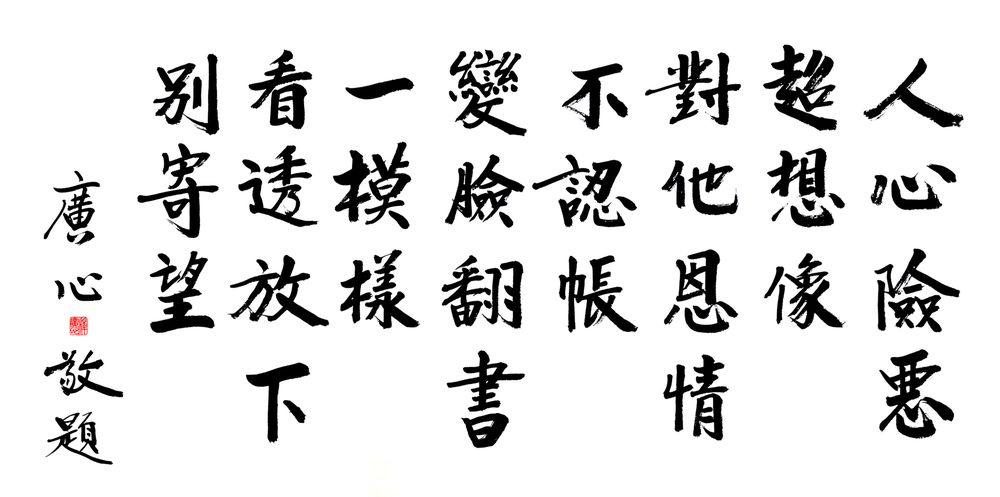 人心險惡
超想像
對他恩情
不認帳
變臉翻書
一模樣
看透放下
别寄望
廣心敬題